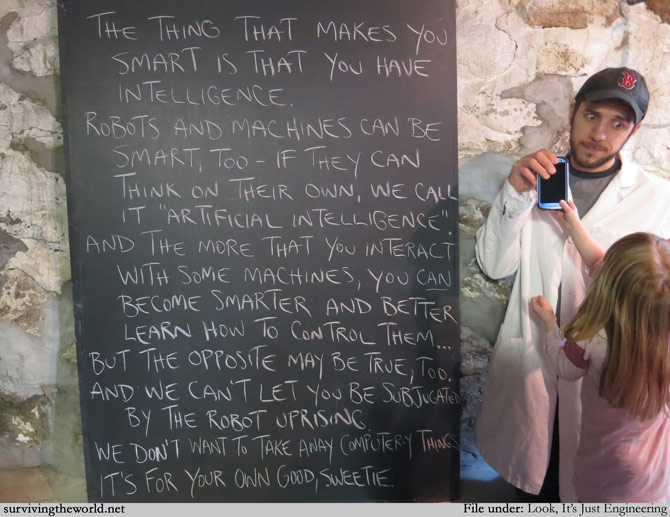 THE THING THAT MAKES YOU
SMART IS THAT YOU HAVE
INTELLIGENCE.
ROBOTS AND MACHINES CAN BE
SMART, TOO - IF THEY CAN
THINK ON THEIR OWN, WE CALL
IT "ARTIFICIAL INTELLIGENCE".
AND THE MORE THAT YOU INTERACT
WITH SOME MACHINES, YOU CAN
BECOME SMARTER AND BETTER
LEARN HOW TO CONTROL THEM...
BUT THE OPPOSITE MAY BE TRUE, TOO.
AND WE CAN'T LET YOU BE SUBJUGATED
BY THE ROBOT UPRISING.
WE DON'T WANT TO TAKE AWAY COMPUTERY THINGS
IT'S FOR YOUR OWN GOOD, SWEETIE.
B
survivingtheworld.net
File under: Look, It's Just Engineering